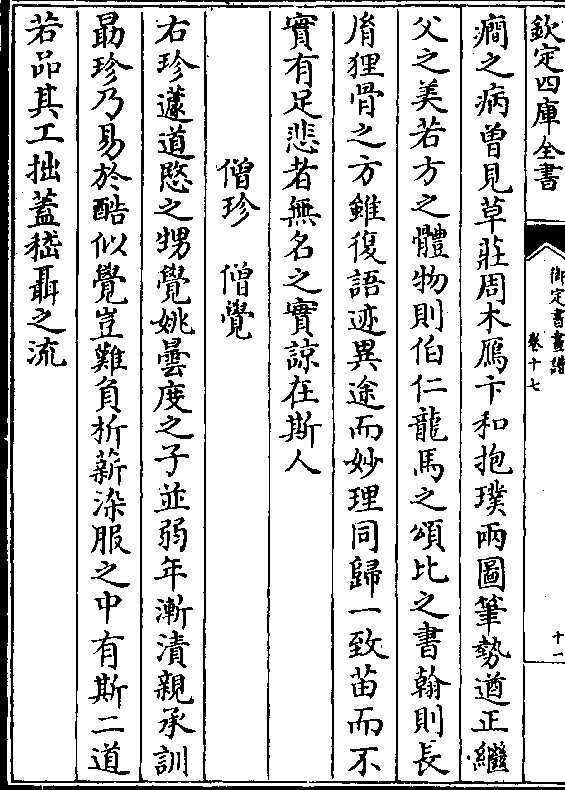 欽定四庫全書
御定書畫譜
卷十七
十一
癇之病曽見草莊周木鴈卞和抱璞兩圖筆勢遒正繼
父之美若方之體物則伯仁龍馬之頌比之書翰則長
胤狸骨之方雖復語迹異途而妙理同歸一致苗而不
實有足悲者無名之實諒在斯人
僧珍　僧覺
右珍蘧道愍之甥覺姚曇度之子並弱年漸漬親承訓
勗珍乃易於酷似覺豈難負析薪染服之中有斯二道
若品其工拙蓋嵇聶之流